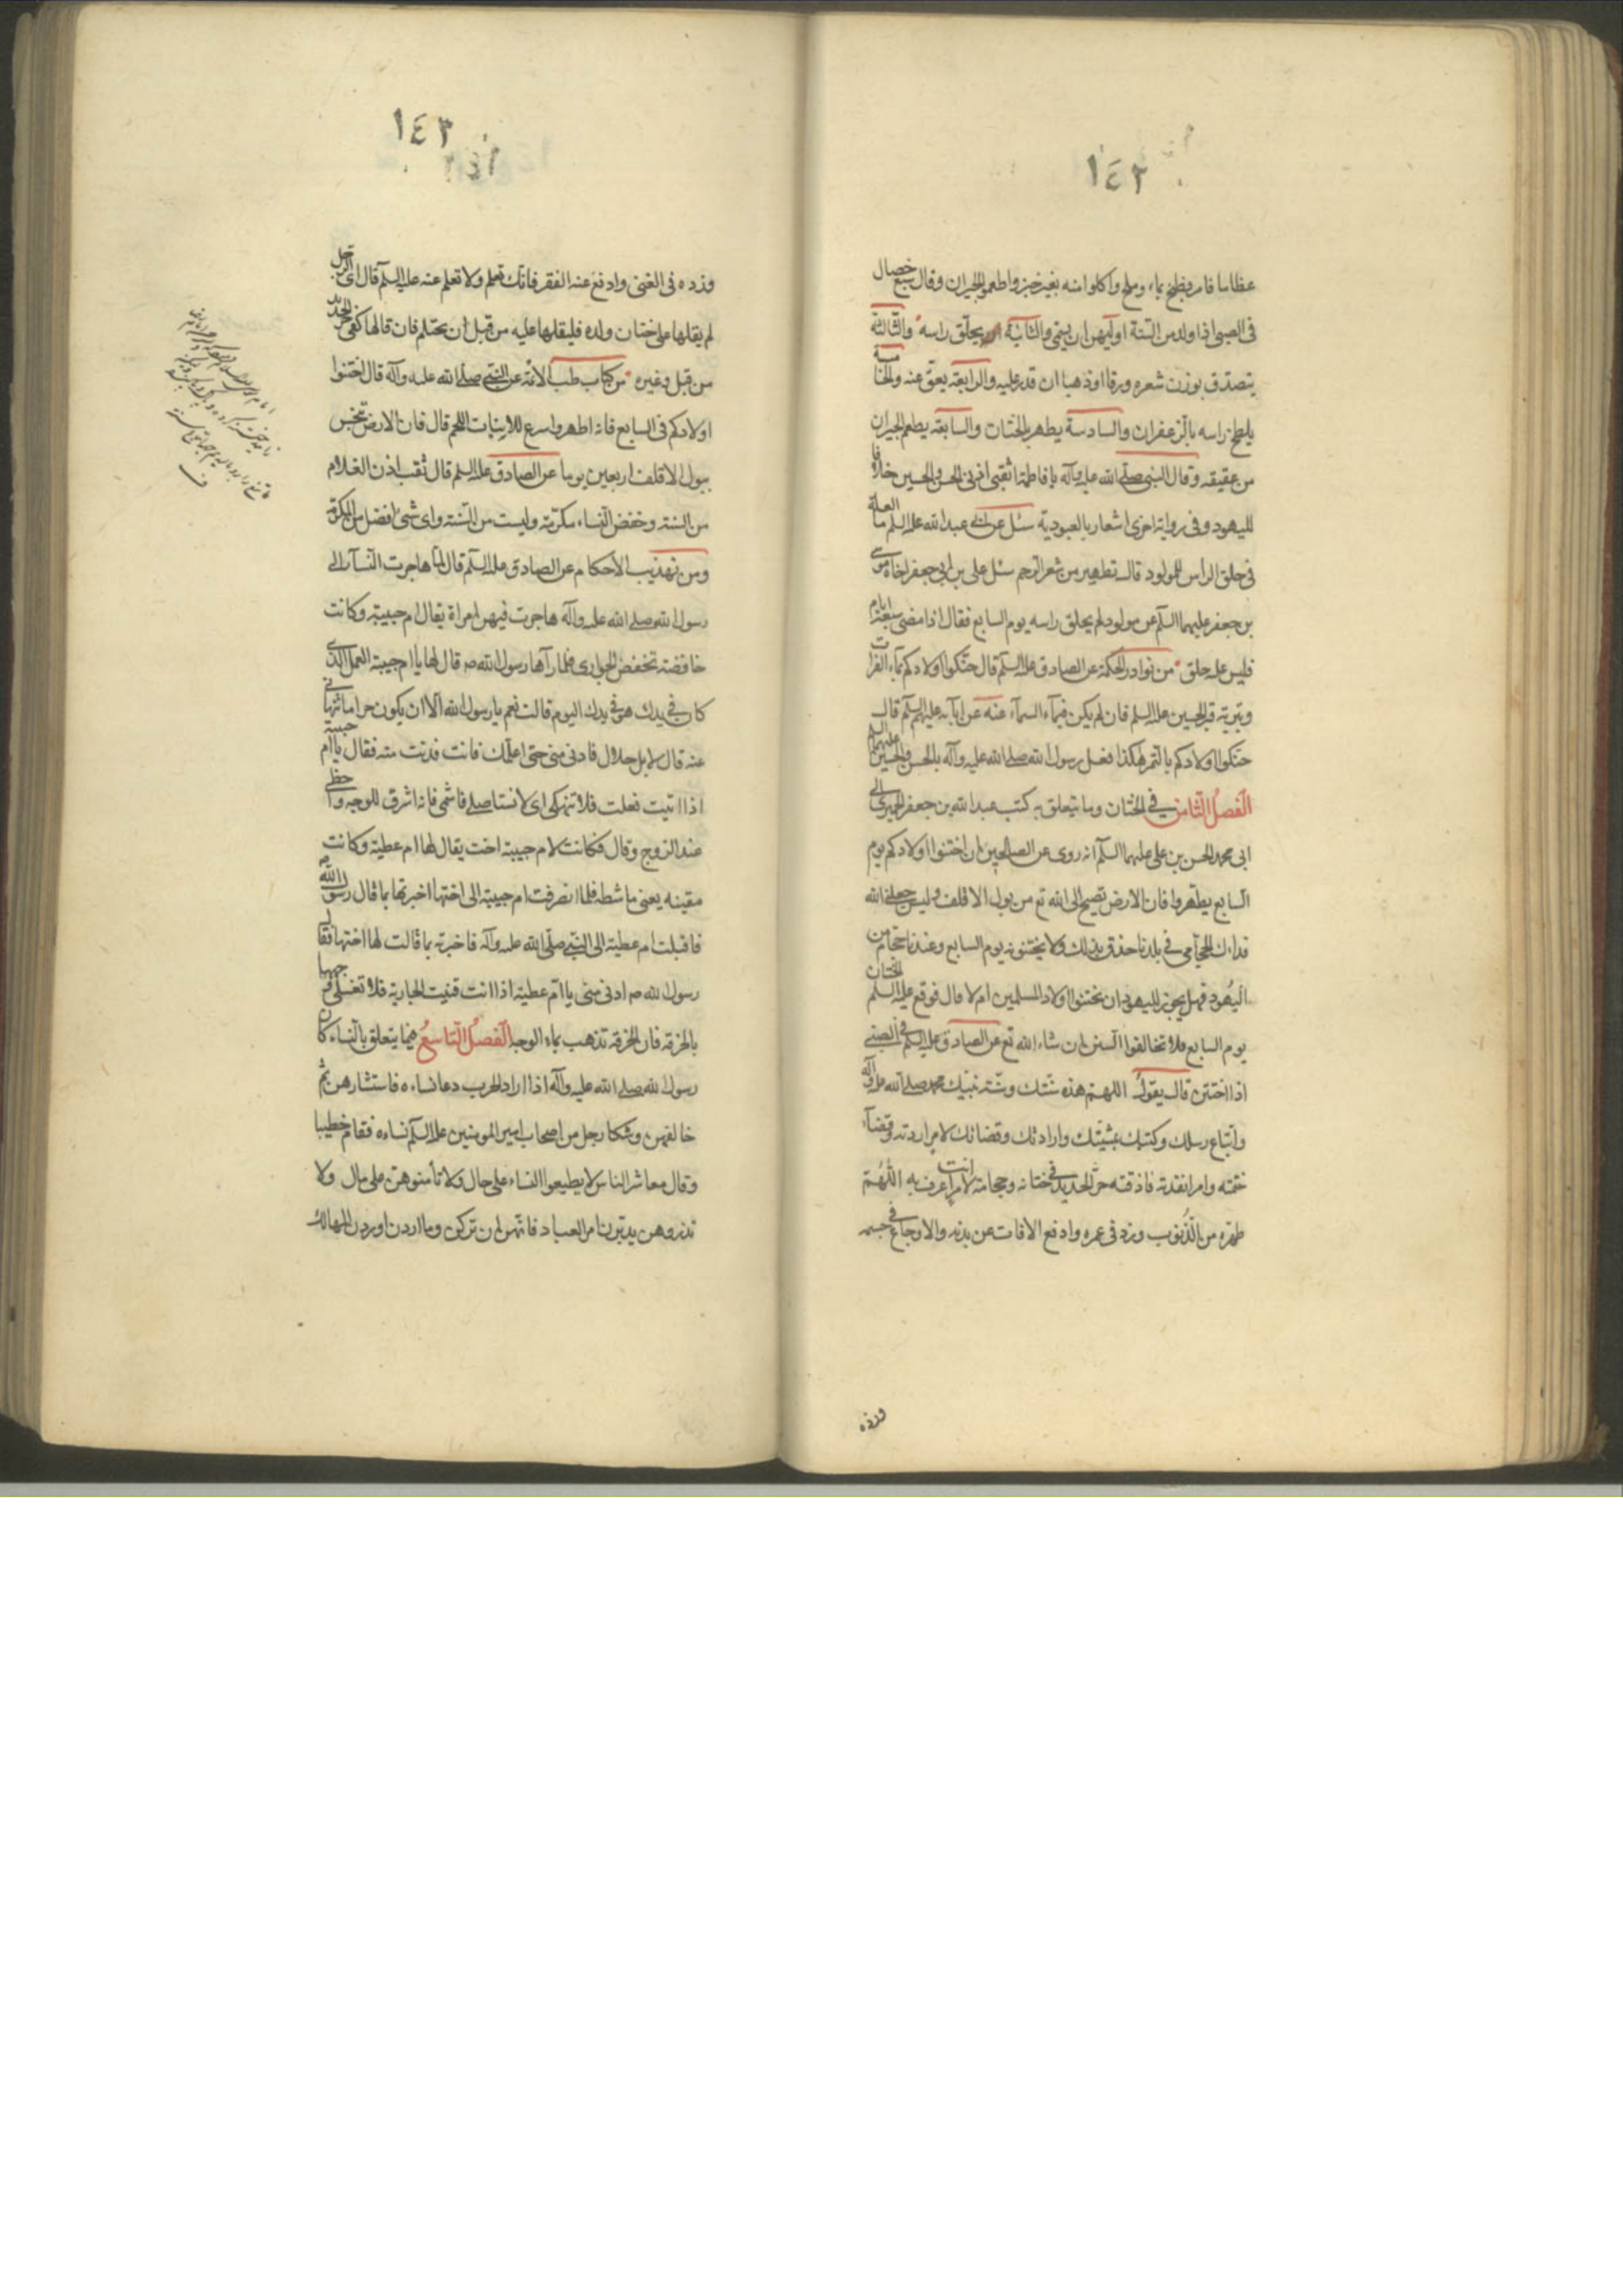 ١٤٢
عظاما فامر فطبخ بماء وملح واكلوا منه بغير خبز واطعموا الجيران وقال سبع خصال
فى الصبى اذا ولد من السنة اوليهن ان يسمى والثانية يحلق راسه والثالثة
يتصدق بوزن شعره ورقا او ذهبا ان قدر عليه والرابعة يعق عنه والخامسة
يلطخ راسه بالزعفران والسادسة يطهر بالختان والسابعة يطعم الجيران
من عقيقته وقال النبى صلى الله عليه وآله يا فاطمة اثقبى اذنى الحسن والحسين خلافا
لليهود وفى رواية اخرى اشعار بالعبودية سئل عن ابى عبد الله عليه السلم ما العلة
فى حلق الراس للمولود قال تطهير من شعر الرحم سئل على بن ابى جعفر اخاه موسى
بن جعفر عليهما السلم عن مولود لم يحلق راسه يوم السابع فقال اذا مضى سبعة ايام
فليس عليه حلق من نوادر الحكمة عن الصادق عليه السلم قال حنكوا اولادكم بماء الفرات
وبتربة قبر الحسين عليه السلم فان لم يكن فبماء السماء عنه عن ابائه عليهم السلم قال
حنكوا اولادكم بالتمر هكذا فعل رسول الله صلى الله عليه وآله بالحسن والحسين عليهما السلم
الفصل الثامن فى الختان وما يتعلق به كتب عبد الله بن جعفر الحميرى الى
ابى محمد الحسن بن على عليهما السلم انه روى عن الصالحين ان اختنوا اولادكم يوم
السابع يطهروا فان الارض تضج الى الله تع من بول الاقلف وليس جعلنى الله
فداءك لحجامى فى بلدنا حذق بذلك ولا يختنونه يوم السابع وعندنا حجام من
اليهود فهل يجوز لليهود ان يختنوا اولاد المسلمين ام لا قال فوقع عليه السلم الختان
يوم السابع فلا تخالفوا السنن ان شاء الله تع عن الصادق عليه السلم فى الصبى
اذا اختتن قال يقول اللهم هذه سنتك وسنة نبيك محمد صلى الله عليه وآله
واتباع رسلك وكتبك بمشيتك وارادتك وقضائك لامر اردته وقضاء
ختمته وامر انفذته فاذقته حر الحديد فى ختانه وحجامته لامر انت اعرف به اللهم
طهره من الذنوب وزد فى عمره وادفع الافات عن بدنه والاوجاع فى جسمه
وزده
١٤٣
وزده فى الغنى وادفع عنه الفقر فانك تعلم ولا تعلم عنه عليه السلم قال اى رجل
لم يقلها على ختان ولده فليقلها عليه من قبل ان يحتلم فان قالها كفى حر الحديد
من قبل وغيره من كتاب طب الائمة عن النبى صلى الله عليه وآله قال اختنوا
اولادكم فى السابع فانه اطهر واسرع لنبات اللحم قال فان الارض تنجس
ببول الاقلف اربعين يوما عن الصادق عليه السلم قال ثقب اذن الغلام
من السنة وخفض النساء مكرمة وليست من السنة واى شئ افضل من المكرمة
ومن تهذيب الاحكام عن الصادق عليه السلم قال لما هاجرت النساء الى
رسول الله صلى الله عليه وآله هاجرت فيهن امراة يقال ام حبيبة وكانت
خافضة تخفض الجوارى فلما رآها رسول الله ص قال لها يا ام حبيبة العمل الذى
كان فى يدك هو فى يدك اليوم قالت نعم يا رسول الله الا ان يكون حراما تنهانى
عنه قال لا بل حلال فادنى منى حتى اعلمك فانت فدنت منه فقال يا ام حبيبة
اذا اتيت فعلت فلا تنهكى اى لا تستاصلى فاشمى فانه اشرق للوجه واحظى
عند الزوج وقال فكانت لام حبيبة اخت يقال لها ام عطية وكانت
مقينه يعنى ماشطه فلما انصرفت ام حبيبة الى اختها اخبرتها بما قال رسول الله
فاقبلت ام عطية الى النبى صلى الله عليه وآله فاخبرته بما قالت لها اختها فقال
رسول الله ص ادنى منى يا ام عطية اذا انت قنيت الجارية فلا تغسلى وجهها
بالخرقة فان الخرقة تذهب بماء الوجه الفصل التاسع فيما يتعلق بالنساء كان
رسول الله صلى الله عليه وآله اذا اراد الحرب دعا نساءه فاستشارهن ثم
خالفهن وشكا رجل من اصحاب امير المومنين عليه السلم نساءه فقام خطيبا
وقال معاشر الناس لا يطيعوا النساء على حال ولا تأمنوهن على مال ولا
تذروهن يدبرن امر العباد فانهن ان تركن وما اردن اوردن المهالك